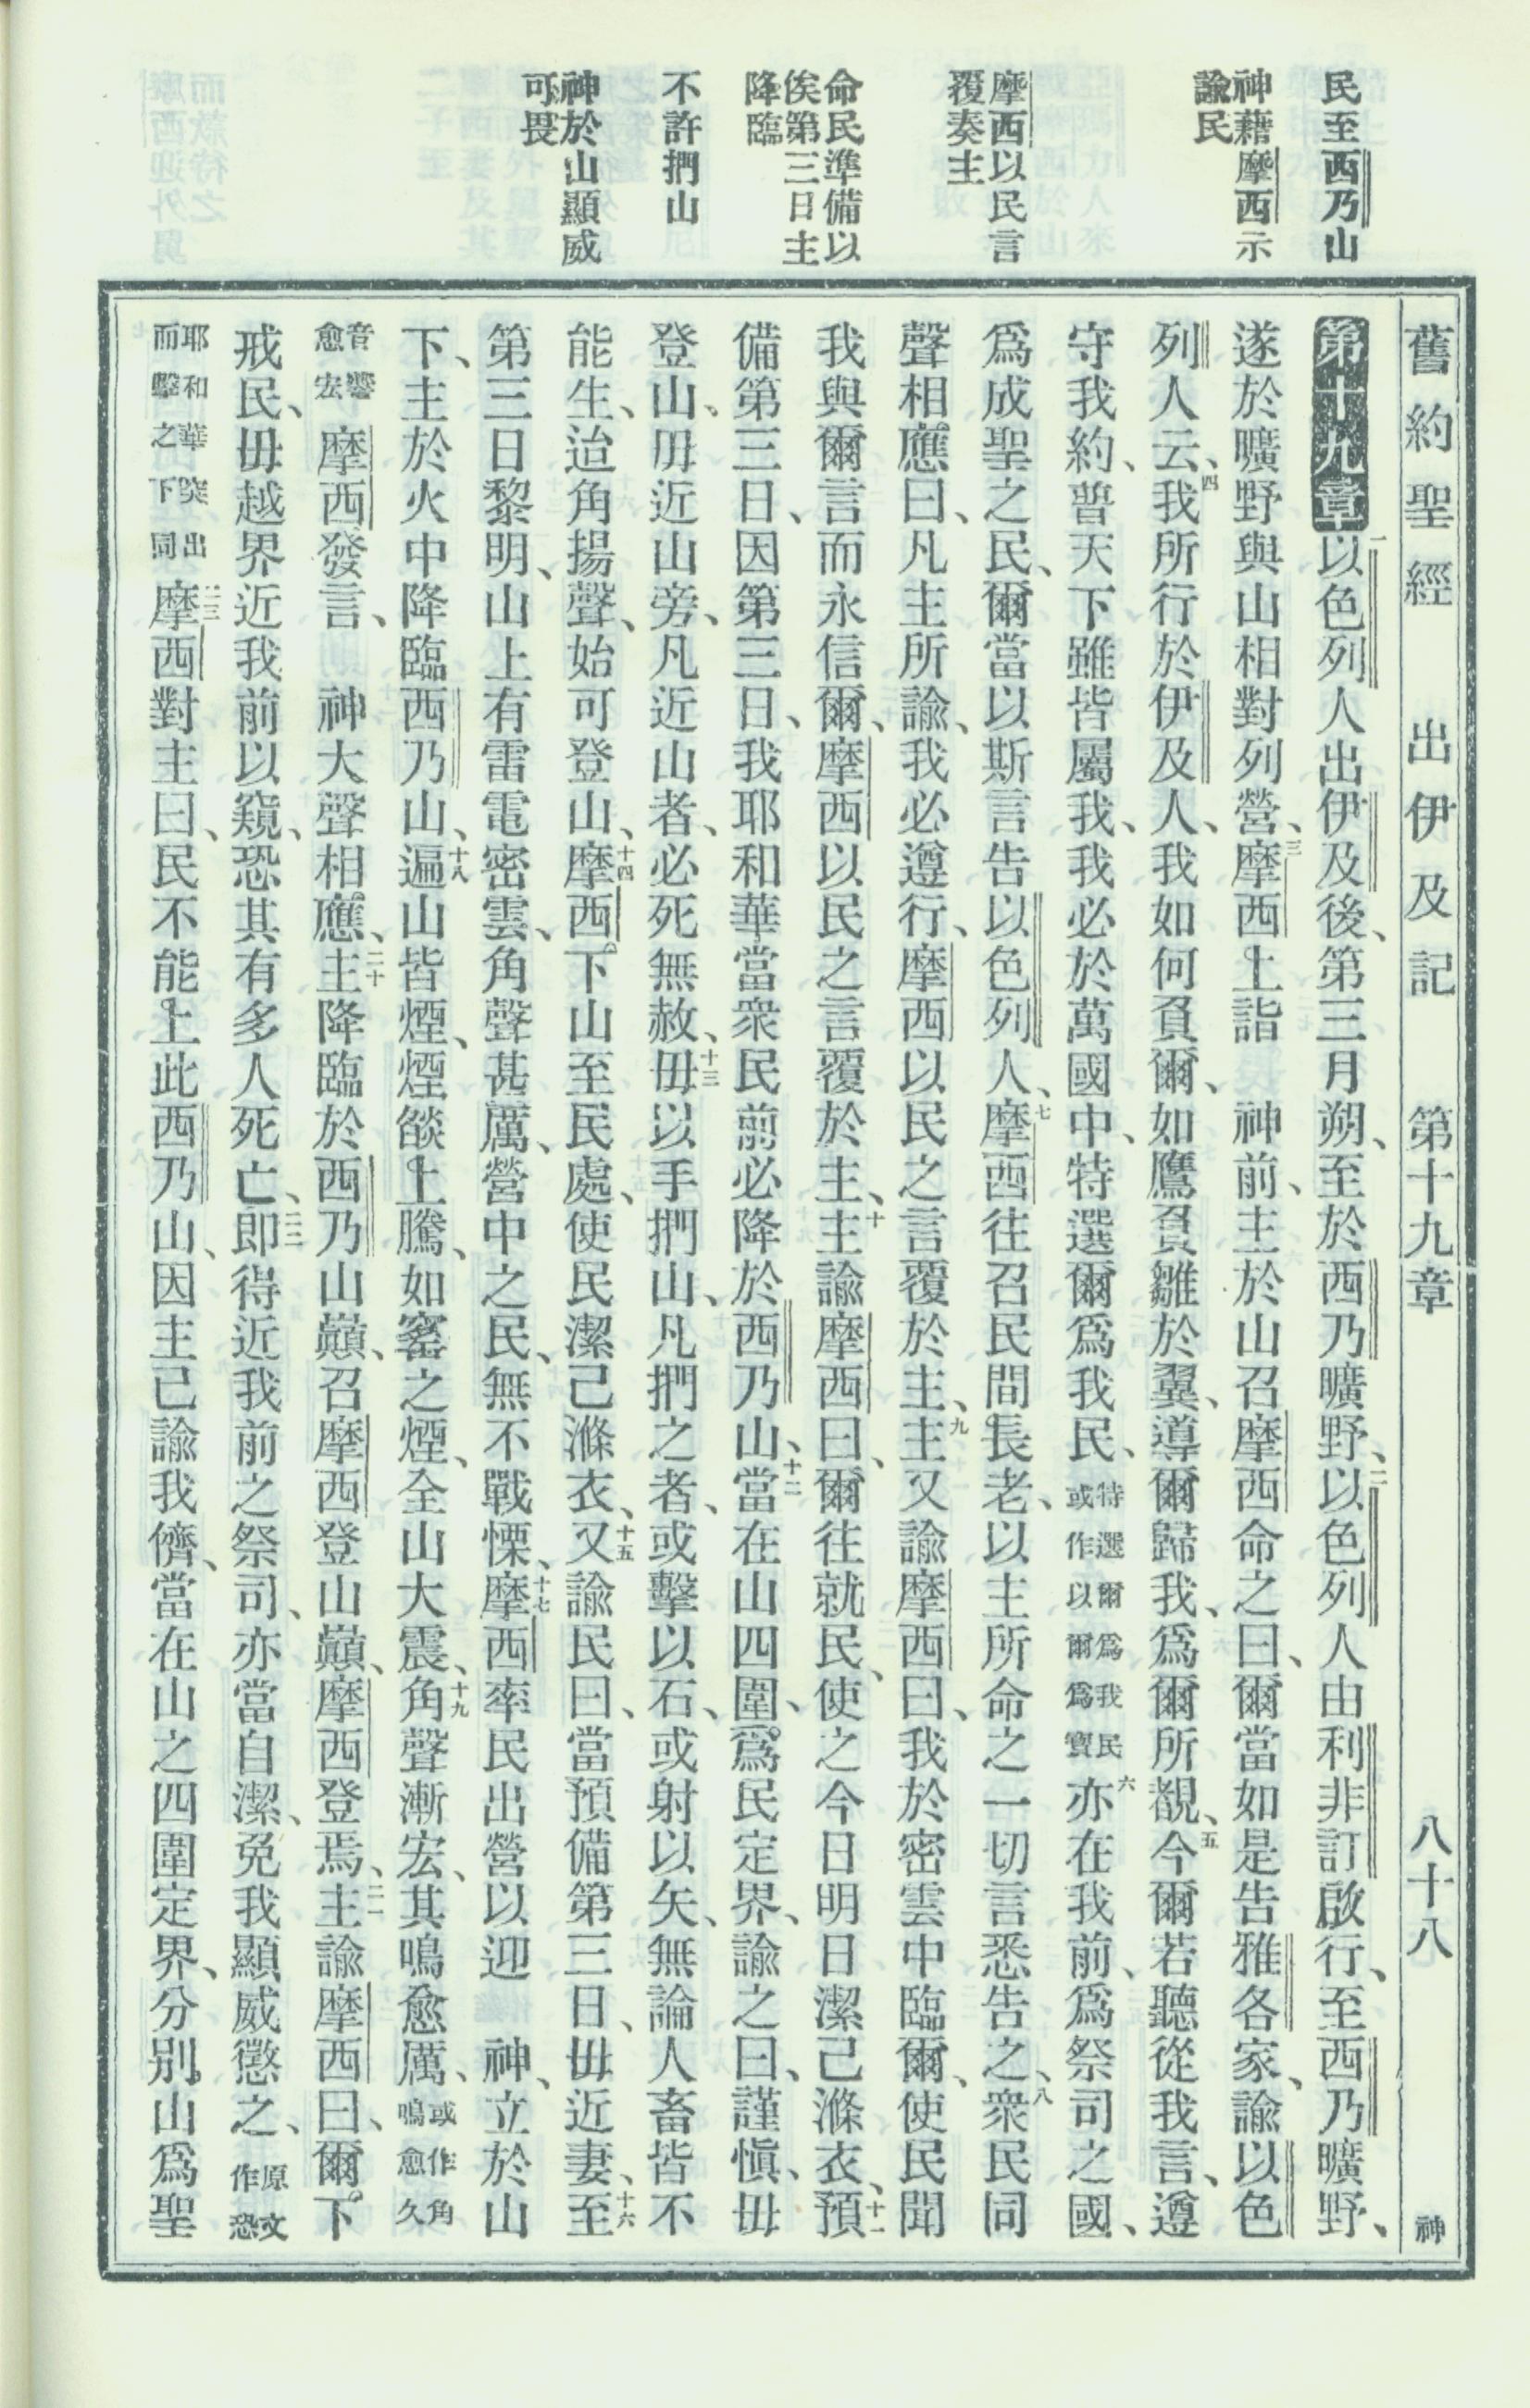 民至西乃山
神藉摩西示
諭民
摩西以民言
覆奏主
命民準備以
俟第三日主
降臨
不許捫山
神於山顯威
可畏
舊約聖經 出伊及記 第十九章 八十八 神
第十九章 一以色列人出伊及後、第三月朔、至於西乃曠野、二以色列人由利非訂啟行、至西乃曠野、
遂於曠野與山相對列營、三摩西上詣 神前、主於山召摩西命之曰、爾當如是告雅各家、諭以色
列人云、四我所行於伊及人、我如何負爾、如鷹負雛於翼、導爾歸我、爲爾所覩、五今爾若聽從我言、遵
守我約、普天下雖皆屬我、我必於萬國中、特選爾爲我民、特選爾爲我民或作以爾爲寶六亦在我前、爲祭司之國、
爲成聖之民、爾當以斯言告以色列人、七摩西往召民間長老、以主所命之一切言悉告之、八衆民同
聲相應曰、凡主所諭、我必遵行、摩西以民之言覆於主、九主又諭摩西曰、我於密雲中臨爾、使民聞
我與爾言而永信爾、摩西以民之言覆於主、十主諭摩西曰、爾往就民、使之今日明日潔己滌衣、十一預
備第三日、因第三日、我耶和華當衆民前必降於西乃山、十二當在山四圍、爲民定界、諭之曰、謹愼、毋
登山、毋近山旁、凡近山者、必死無赦、十三毋以手捫山、凡捫之者、或擊以石、或射以矢、無論人畜皆不
能生、迨角揚聲、始可登山、十四摩西下山至民處、使民潔己滌衣、十五又諭民曰、當預備第三日、毋近妻、十六至
第三日黎明、山上有雷電密雲、角聲甚厲、營中之民、無不戰慄、十七摩西率民出營以迎 神、立於山
下、主於火中降臨西乃山、十八遍山皆煙、煙燄上騰、如窰之煙、全山大震、十九角聲漸宏、其鳴愈厲、或作角鳴愈久
音響愈宏摩西發言、 神大聲相應、二十主降臨於西乃山巓、召摩西登山巓、摩西登焉、二一主諭摩西曰、爾下
戒民、毋越界近我前以窺、恐其有多人死亡、二二即得近我前之祭司、亦當自潔、免我顯威懲之、原文作恐
耶和華突出而擊之下同二三摩西對主曰、民不能上此西乃山、因主已諭我儕、當在山之四圍定界、分別山爲聖